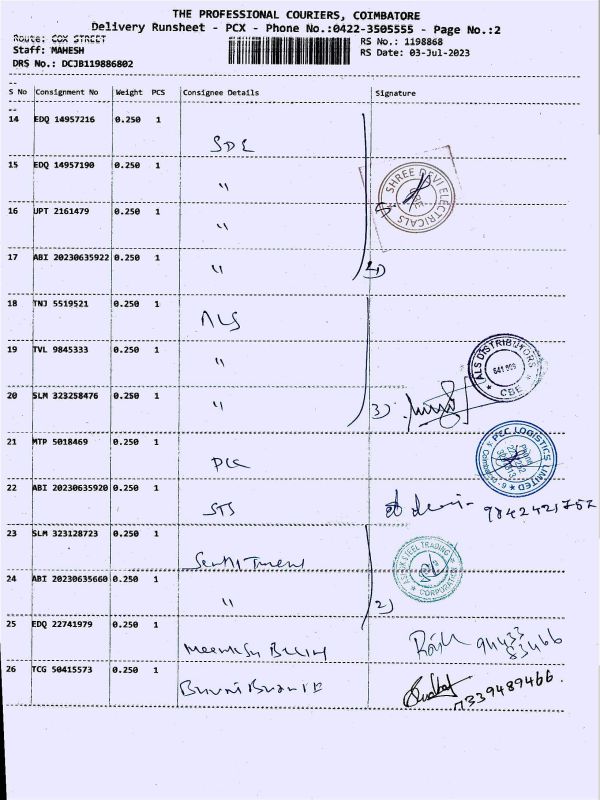 THE PROFESSIONAL COURIERS, COIMBATORE
Delivery Runsheet - PCX - Phone No.:0422-3505555 - Page No.:2
Route: COX STREET
Staff: MAHESH
DRS No.: DCJB119886802
RS No.: 1198868
RS Date: 03-Jul-2023
S No Consignment No Weight PCS Consignee Details Signature
14 EDQ 14957216 0.250 1
15 EDQ 14957190 0.250 1 "
SHREE DEVI ELECTRICALS
16 UPT 2161479 0.250 1 "
17 ABI 20230635922 0.250 1 "
18 TNJ 5519521 0.250 1 ALS
19 TVL 9845333 0.250 1 "
ALS DISTRIBUTORS
CBE
20 SLM 323258476 0.250 1 " 3)
21 MTP 5018469 0.250 1
LOGISTICS LIMITED
22 ABI 20230635920 0.250 1 STS
23 SLM 323128723 0.250 1
STEEL TRADING CORPORATION
24 ABI 20230635660 0.250 1 " 2)
25 EDQ 22741979 0.250 1
94433 83466
26 TCG 50415573 0.250 1
7339489466.